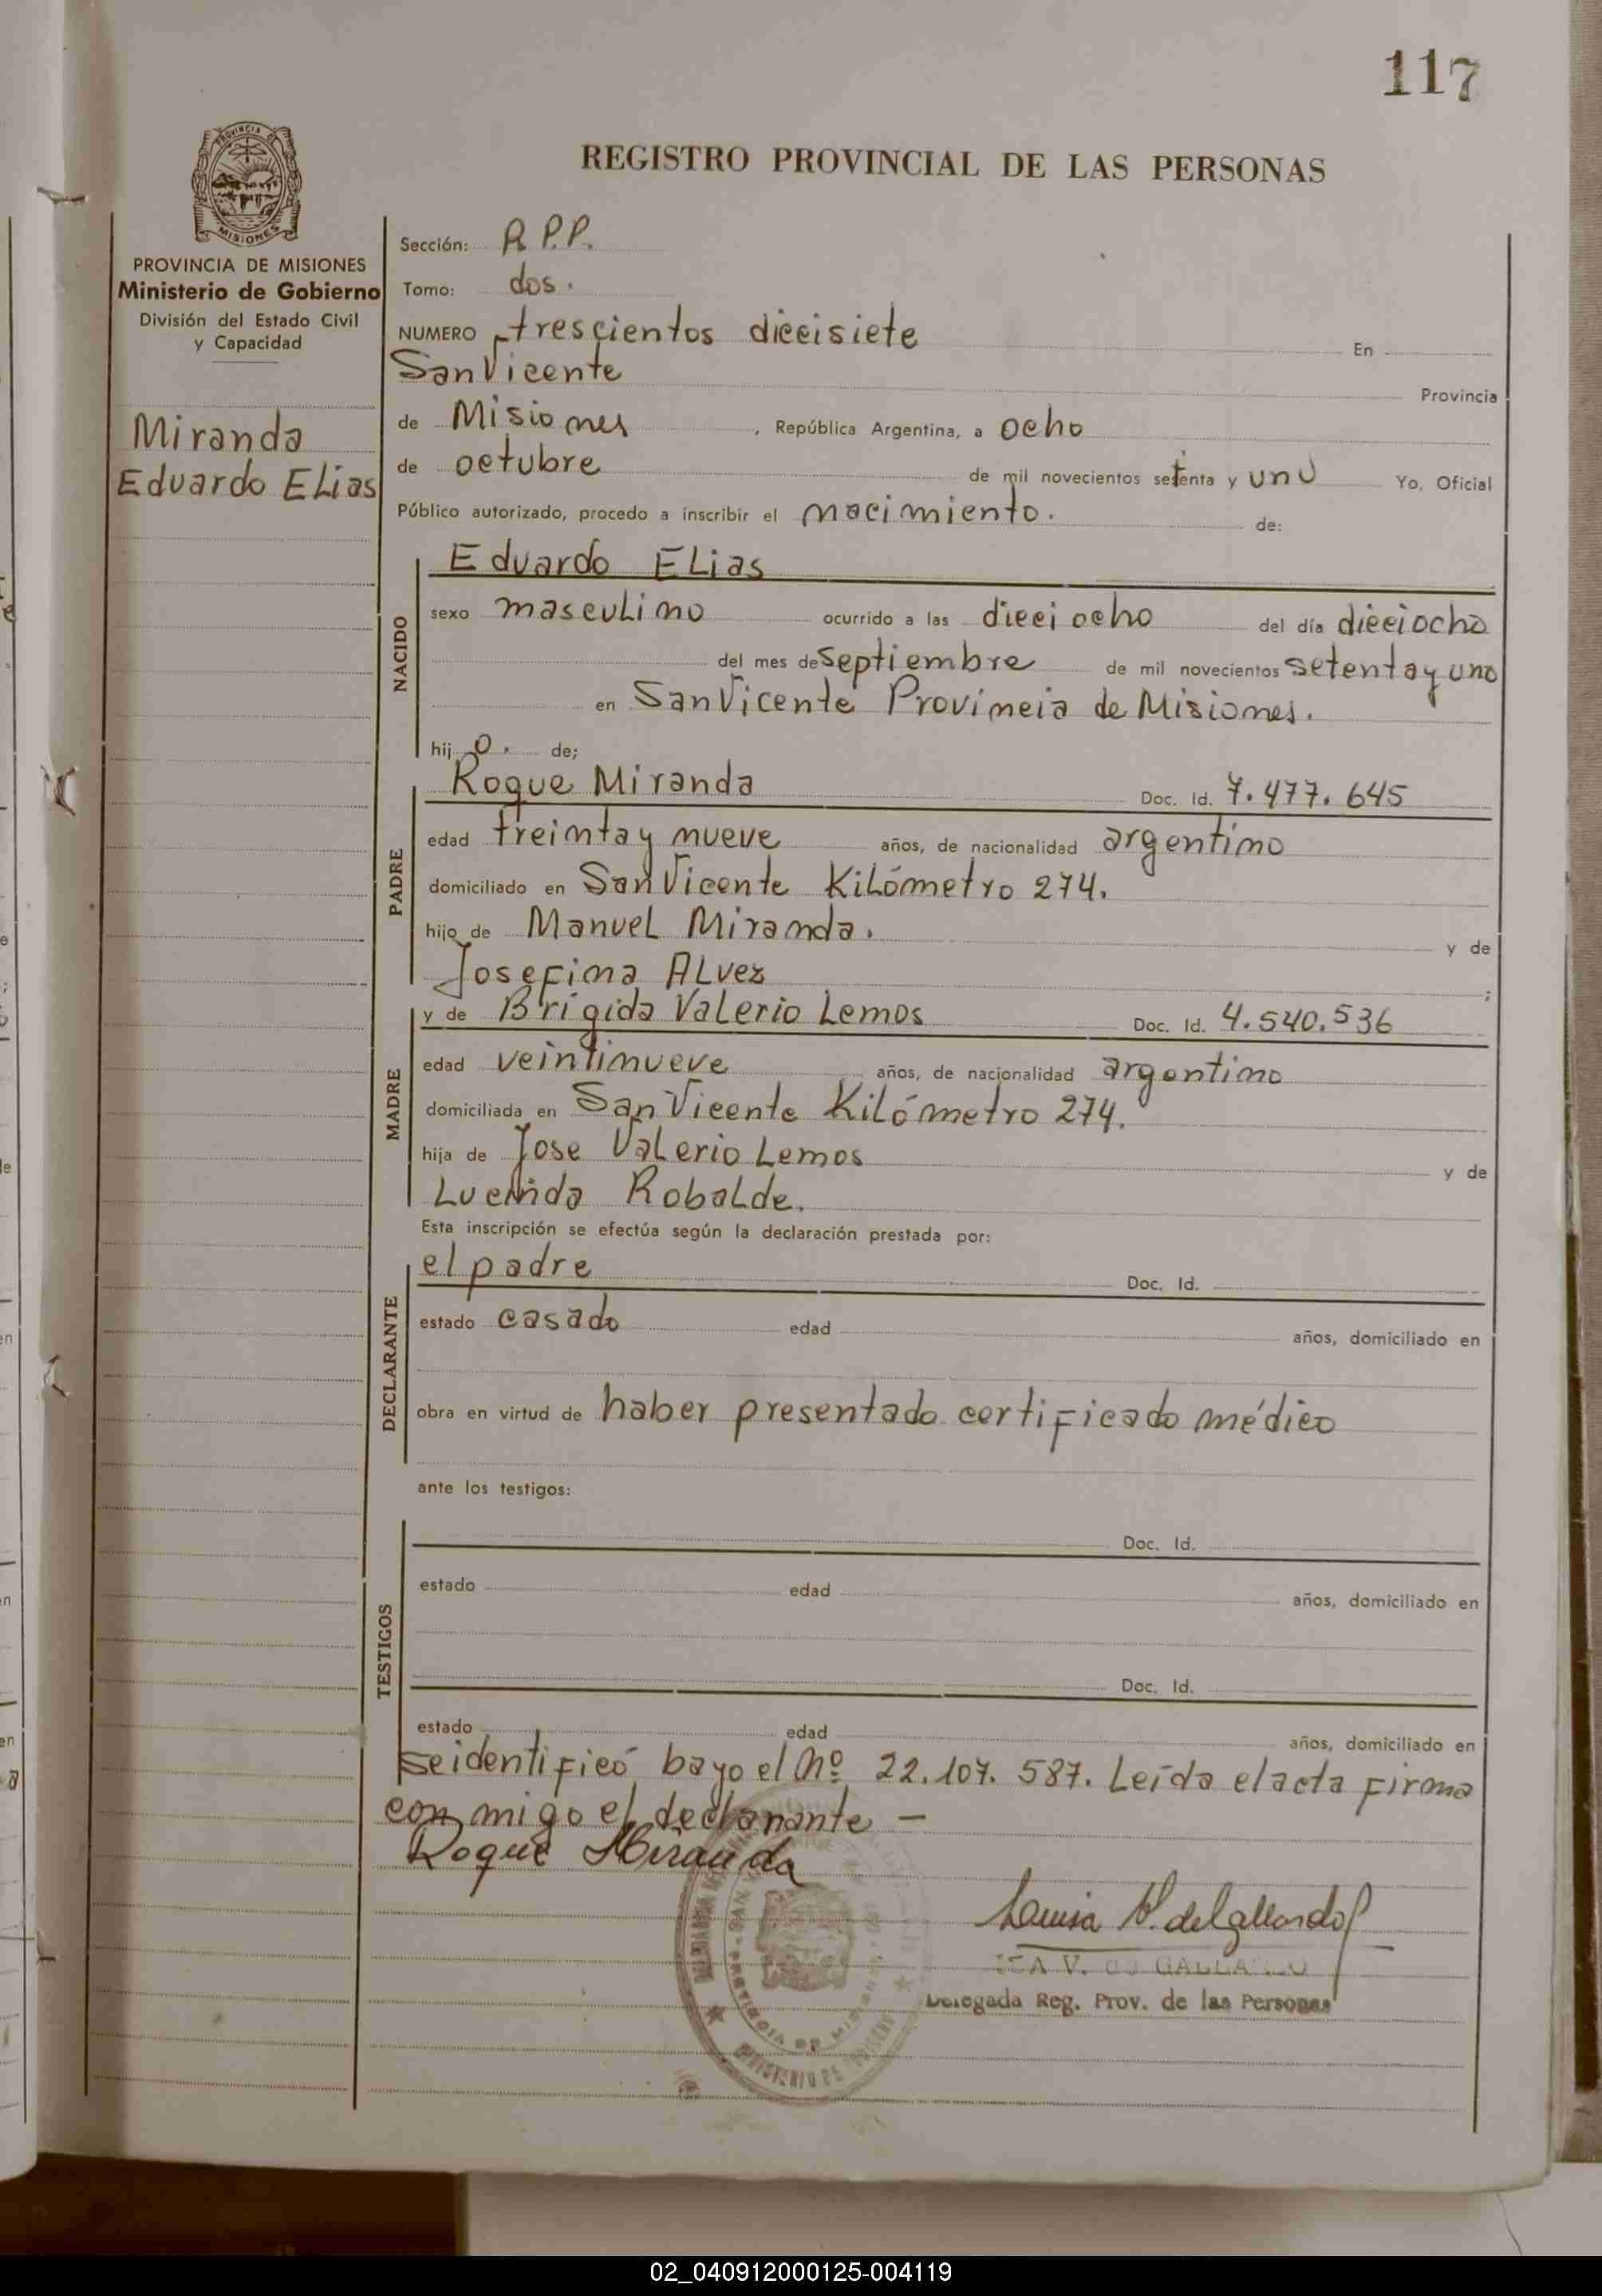 117
REGISTRO PROVINCIAL DE LAS PERSONAS
PROVINCIA DE
MISIONES
PROVINCIA DE MISIONES
Ministerio de Gobierno
División del Estado Civil
y Capacidad
Miranda
Eduardo Elias
Sección: R P.P.
Tomo: dos.
NUMERO trescientos diecisiete En
San Vicente
Provincia
de Misiones, República Argentina, a ocho
de octubre de mil novecientos setenta y uno Yo, Oficial
Público autorizado, procedo a inscribir el nacimiento. de:
NACIDO
Eduardo Elias
sexo masculino ocurrido a las dieci ocho del día dieciocho
del mes de septiembre de mil novecientos setenta y uno
en San Vicente Provincia de Misiones.
hijo. de;
PADRE
Roque Miranda Doc. Id. 7.477.645
edad treinta y nueve años, de nacionalidad argentino
domiciliado en San Vicente Kilómetro 274.
hijo de Manuel Miranda. y de
Josefina Alvez ;
MADRE
y de Brígida Valerio Lemos Doc. Id. 4.540.536
edad veintinueve años, de nacionalidad argentina
domiciliada en San Vicente Kilómetro 274.
hija de Jose Valerio Lemos y de
Lucinda Robalde.
Esta inscripción se efectúa según la declaración prestada por:
DECLARANTE
el padre Doc. Id.
estado casado edad años, domiciliado en
obra en virtud de haber presentado certificado médico
ante los testigos:
TESTIGOS
Doc. Id.
estado edad años, domiciliado en
Doc. Id.
estado edad años, domiciliado en
se identificó bayo el Nº 22.107.587. Leída el acta firma
con migo el declarante —
Roque Miranda
Delegada Reg. Prov. de las Personas
02_040912000125-004119